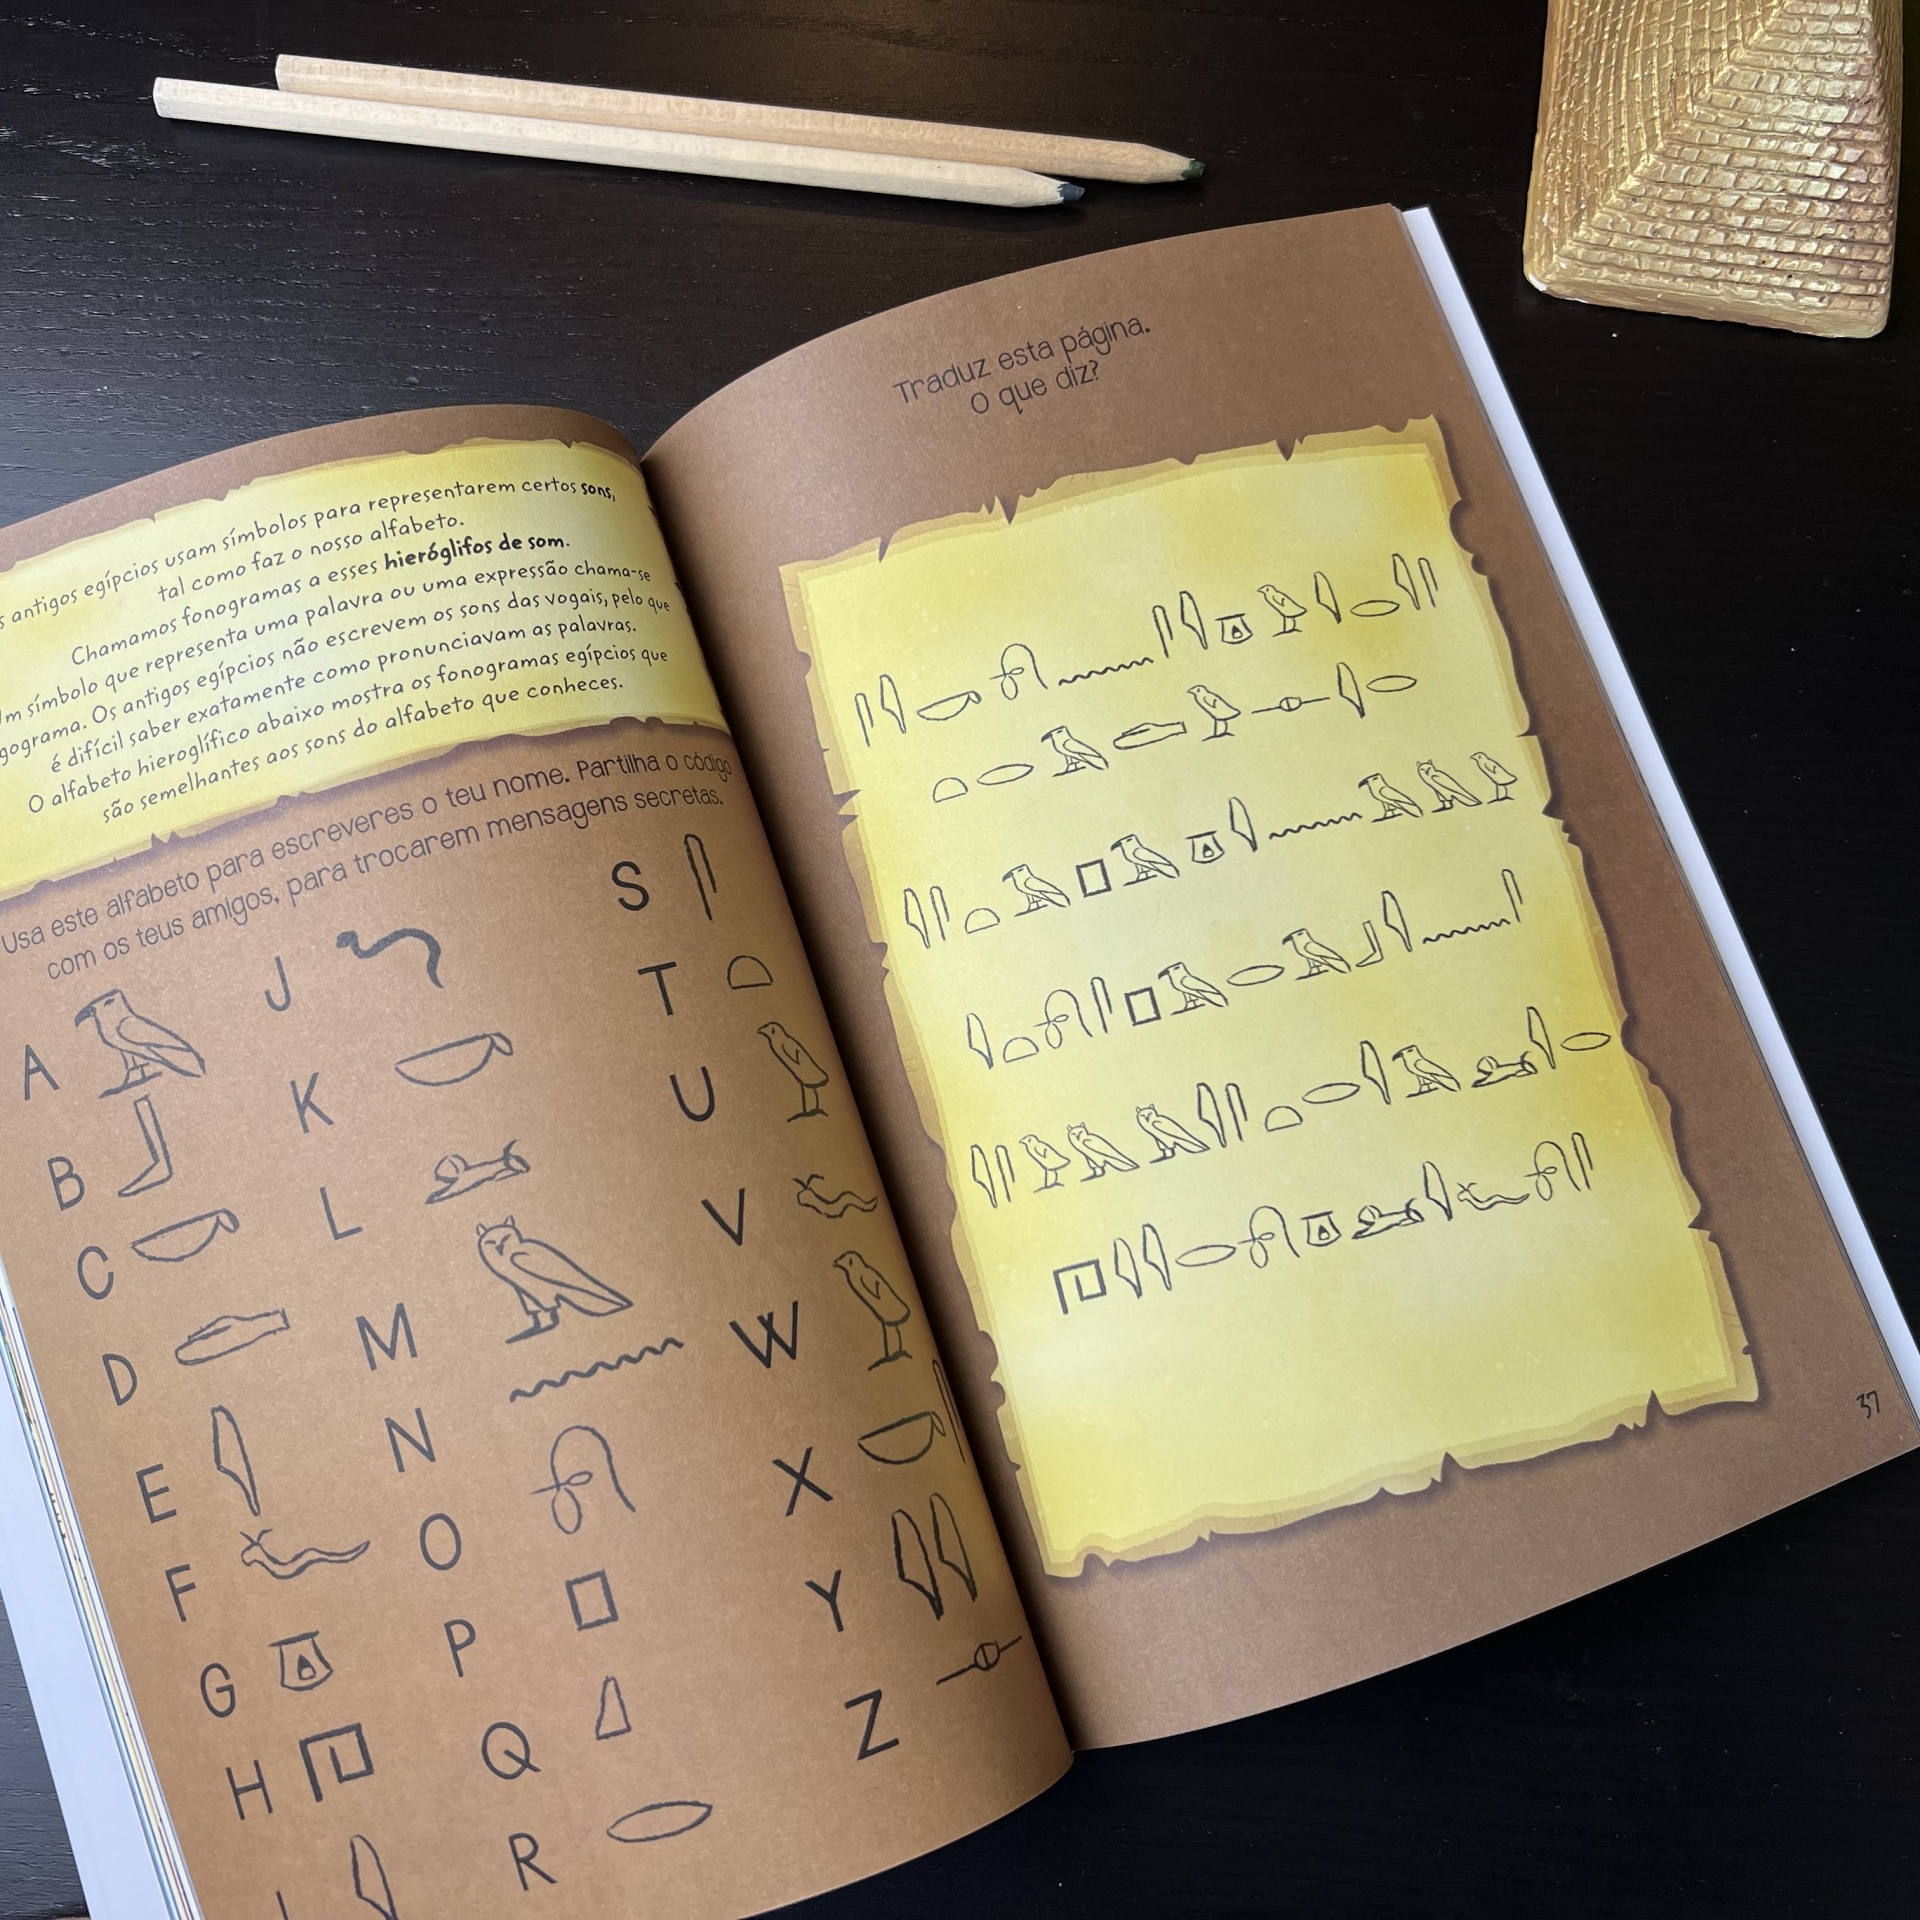 antigos egípcios usam símbolos para representarem certos sons,
tal como faz o nosso alfabeto.
Chamamos fonogramas a esses hieróglifos de som.
símbolo que representa uma palavra ou uma expressão chama-se
Os antigos egípcios não escrevem os sons das vogais, pelo que
é difícil saber exatamente como pronunciavam as palavras.
O alfabeto hieroglífico abaixo mostra os fonogramas egípcios que
são semelhantes aos sons do alfabeto que conheces.
Usa este alfabeto para escreveres o teu nome. Partilha o código
com os teus amigos, para trocarem mensagens secretas.
A 𓄿
B 𓃀
C 𓎡
D 𓂧
E 𓇋
F 𓆑
G 𓎼
H 𓉔
I 𓇋
J 𓆓
K 𓎡
L 𓃭
M 𓅓
N 𓈖
O 𓍯
P 𓊪
Q 𓈎
R 𓂋
S 𓋴
T 𓏏
U 𓅱
V 𓆑
W 𓅱
X 𓎡𓋴
Y 𓇋𓇋
Z 𓊃
Traduz esta página.
O que diz?
𓋴𓇋𓎡𓍯𓈖𓋴𓇋𓎼𓅱𓇋𓂋𓇋𓋴
𓏏𓂋𓄿𓂧𓅱𓊃𓇋𓂋
𓇋𓋴𓏏𓄿𓊪𓄿𓎼𓇋𓈖𓄿𓅓𓅱
𓇋𓏏𓍯𓋴𓊪𓄿𓂋𓄿𓃀𓇋𓈖𓋴
𓇋𓋴𓅱𓅓𓅓𓇋𓋴𓏏𓂋𓇋𓄿𓃭𓇋𓂋
𓉔𓇋𓇋𓂋𓍯𓎼𓃭𓇋𓆑𓍯𓋴
37